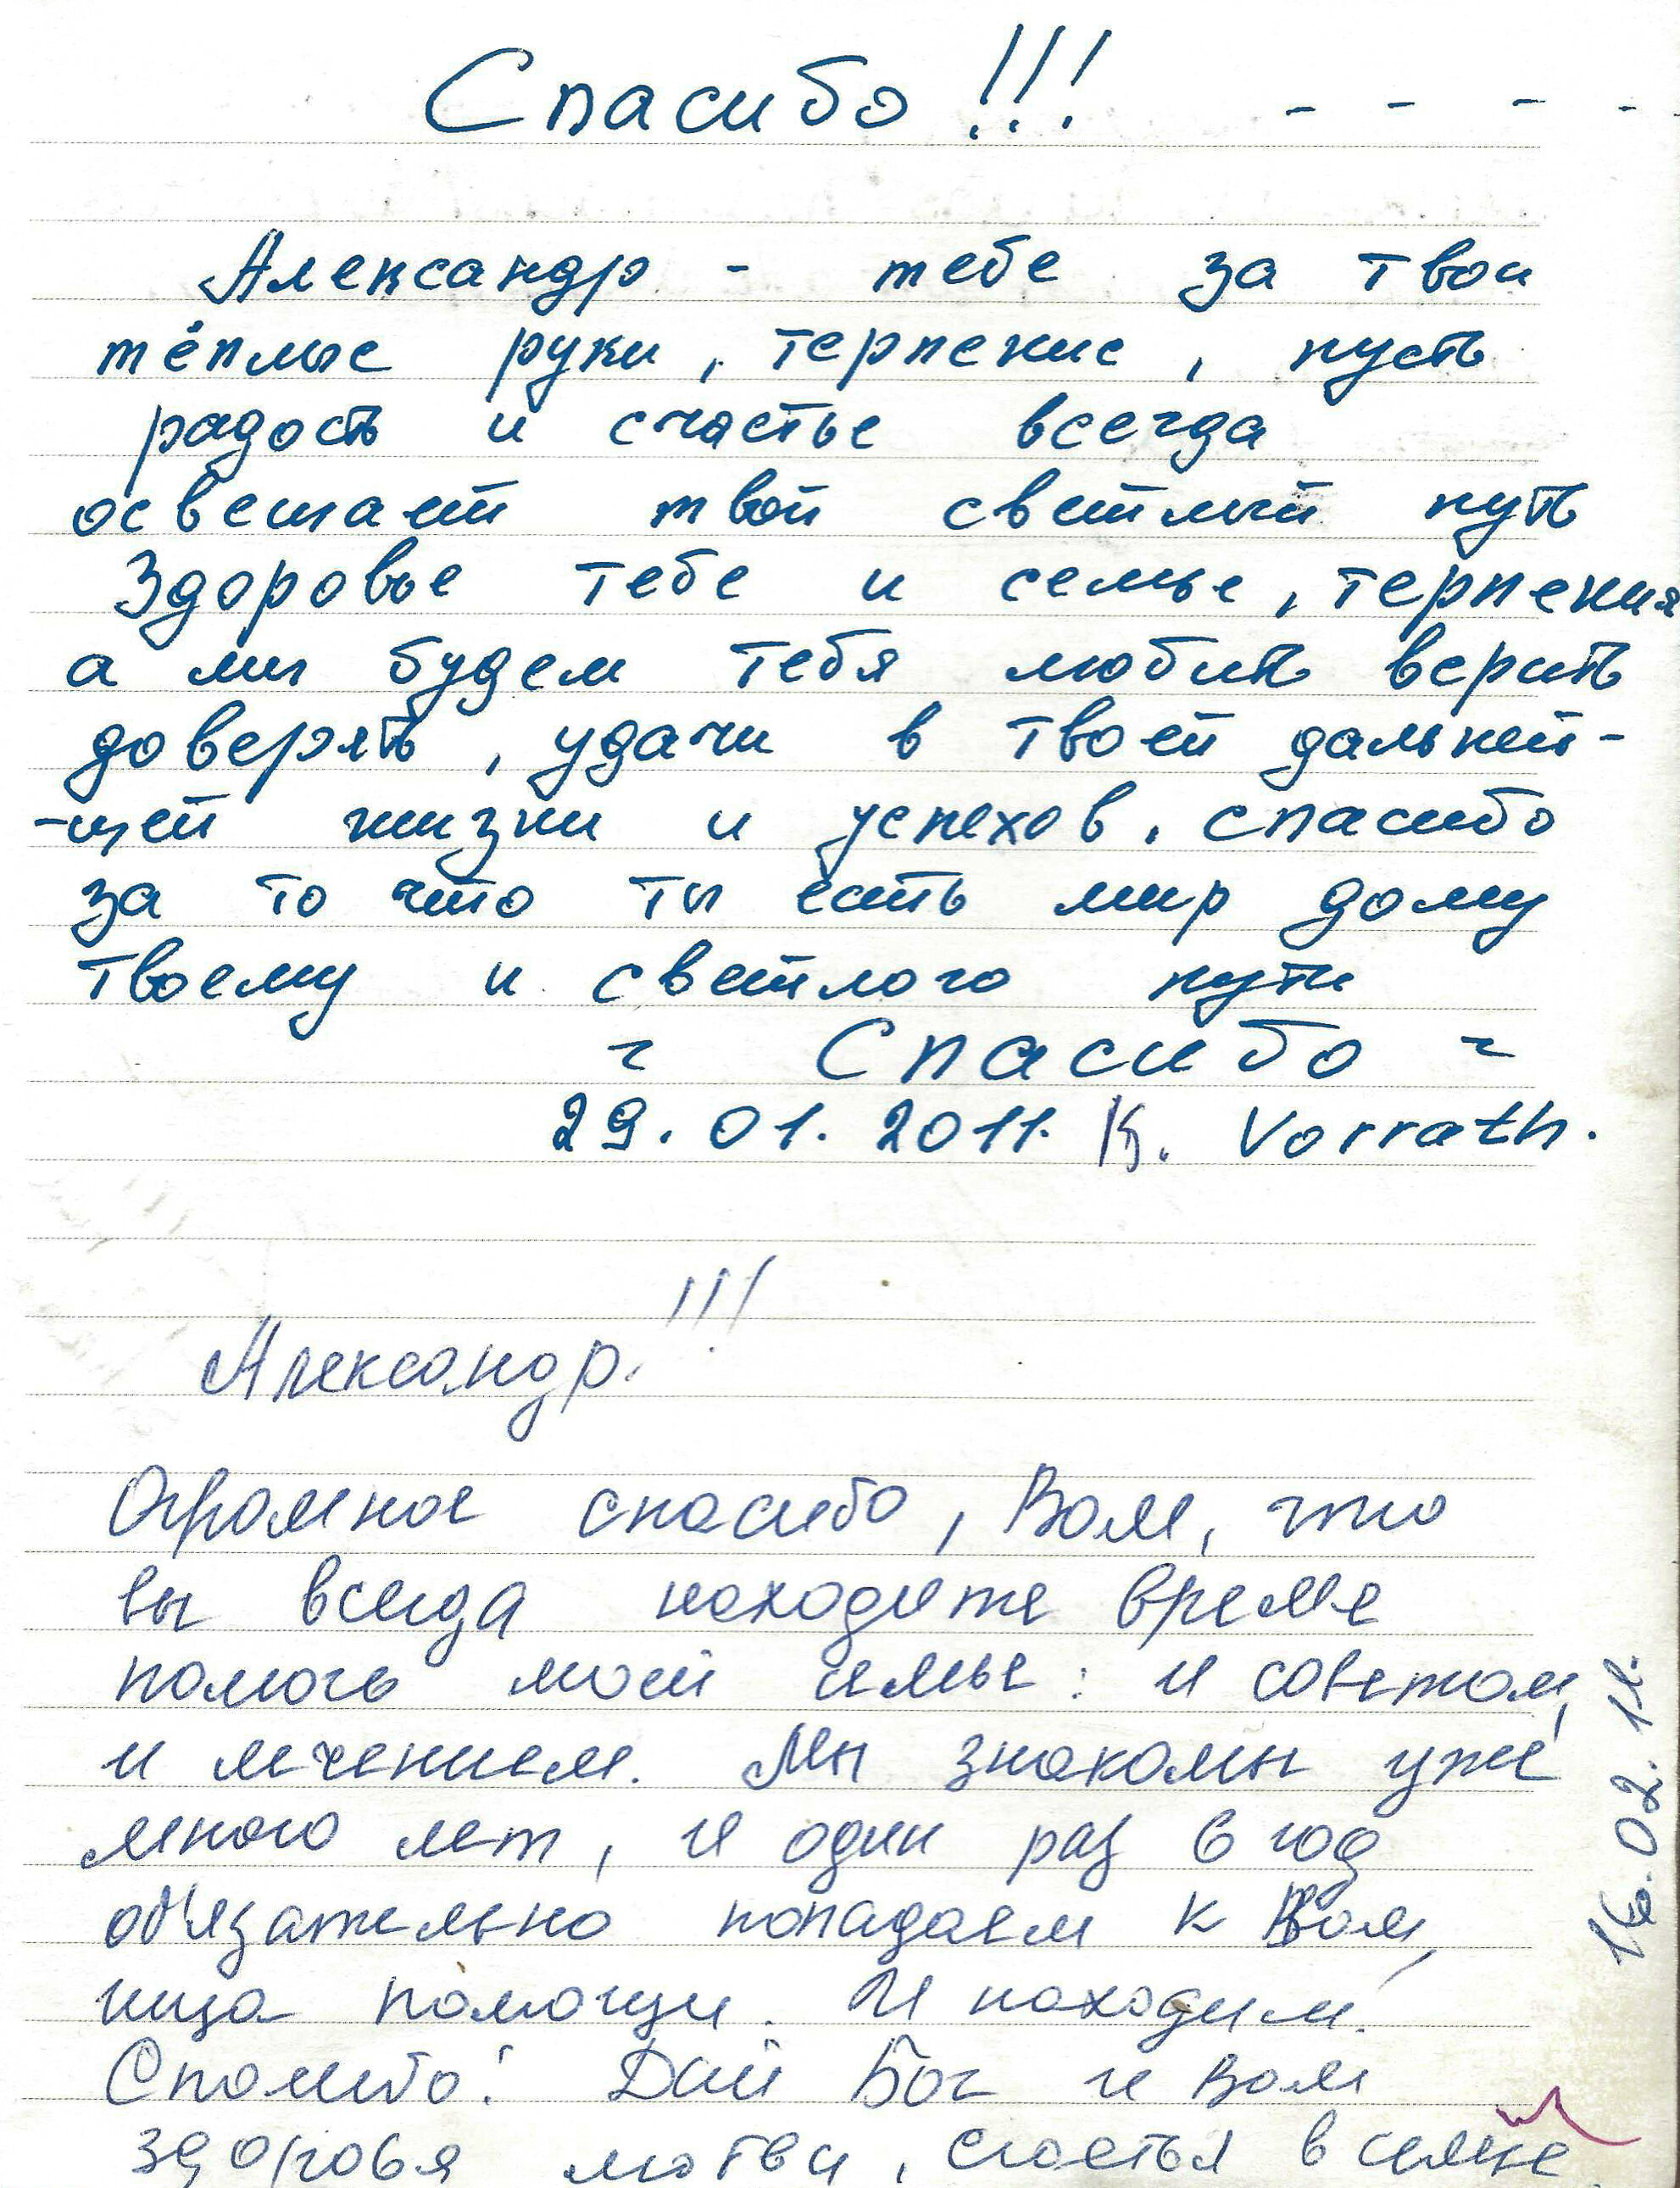 Спасибо !!! - - - -
Александр - тебе за твои
тёплые руки, терпение, пусть
радость и счастье всегда
освещает твой светлый путь
Здоровье тебе и семье, терпения
а мы будем тебя любить верить
доверять, удачи в твоей дальней-
-щей жизни и успехов, спасибо
за то что ты есть мир дому
твоему и светлого пути
- Спасибо -
29.01.2011. К. Vorrath.
Александр!!!
Огромное спасибо, Вам, что
вы всегда находите время
помочь моей семье: и советом,
и лечением. Мы знакомы уже
много лет, и один раз в год
об'язательно попадаем к Вам,
ища помощи. И находим.
Спасибо! Дай Бог и Вам
здоровья любви, счастья в семье.
16.02.11.